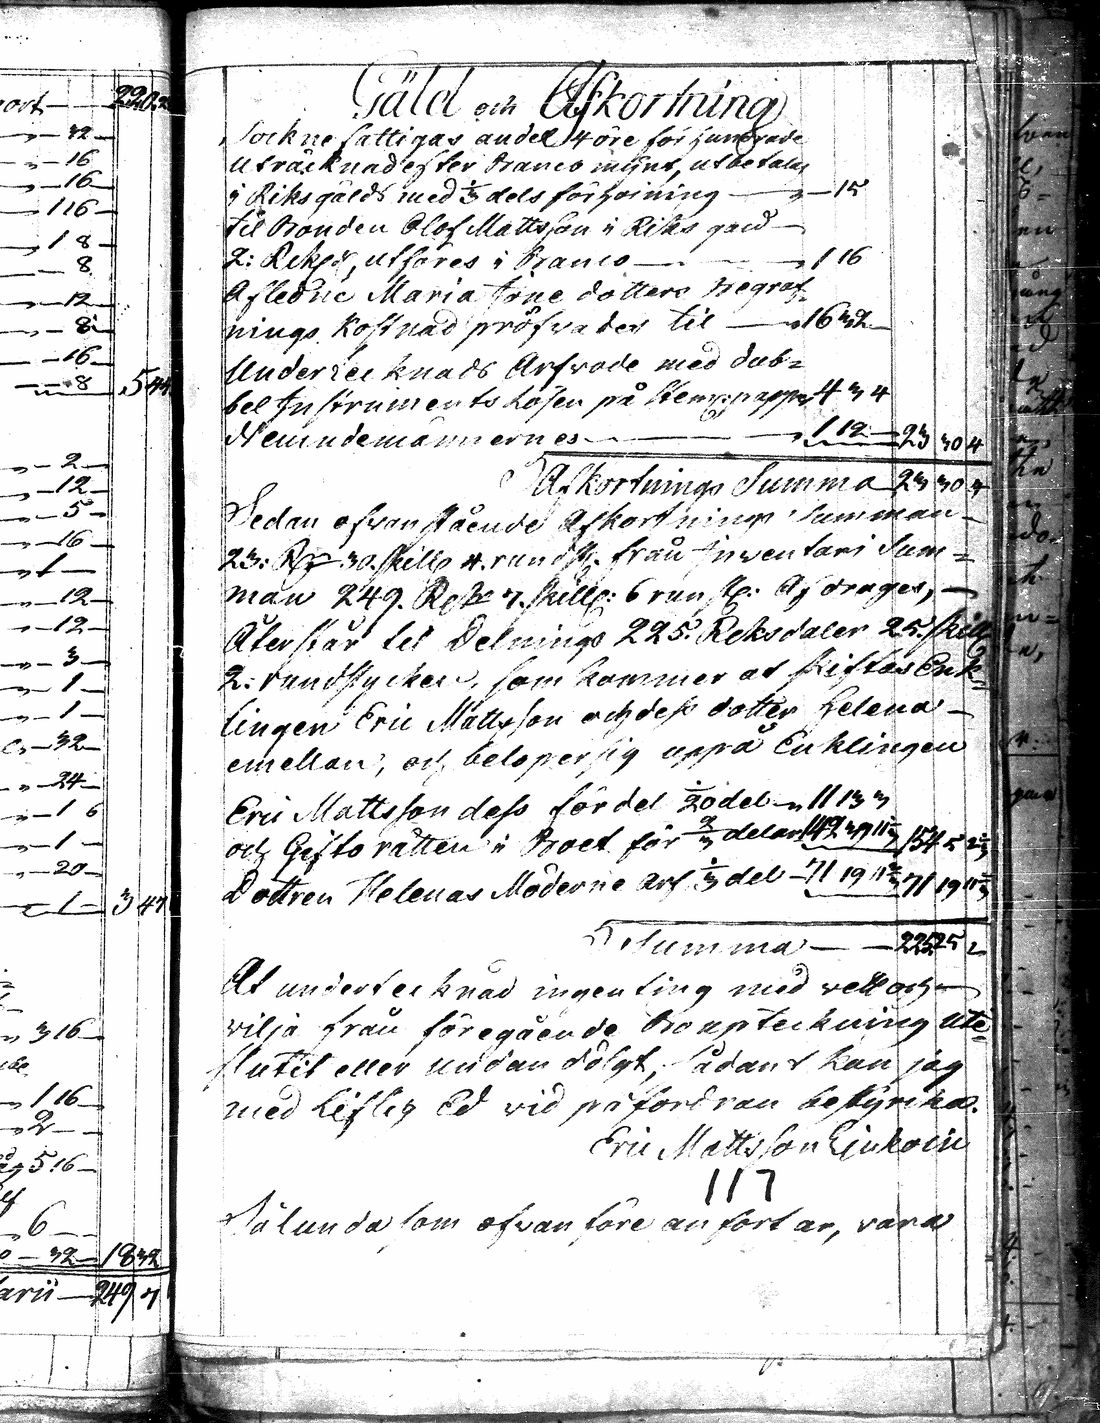 ort — 220
32
16
16
1 16
1 8
8
12
8
16
8 5 44
2
12
5
16
1
12
12
3
1
1
32
24
1 6
1
20
1 3 47
3 16
1 16
2
5 16
6
32 18 32
arii — 249 7
Gäld och Afkortning
Sockne fattigas andel 4 öre för hundrade
uträcknad efter Banco mÿnt, utbetales
i Riksgälds med 1/3 dels förhöining — 15
til Bonden Olof Mattsson i Riks gäld —
2: Riksdr, utföres i Banco — 1 16
Afledne Maria dotters Begraf-
nings Kostnad pröfvades til — 16 32
Undertecknads Arfvode med dub=
bel Instruments Lösen på Stemp: papper 4 3 4
Nemndemännernes — 1 12 23 30 4
Afkortnings Summa 23 30 4
Sedan ofvanstående Afkortnings Summan
23: Rdr 30. skill. 4. rundst. från Inventarii Sum=
man 249. Rdr 7. skill: 6 runst: Afdrages, —
Återstår til Delnings 225. Reksdaler 25. skill
2: rundstycken, som kommer at skiftas Enk=
lingen Eric Mattsson och dess dotter Helena —
emellan, och beloper sig uppå Enklingen
Eric Mattsson dess fördel 1/20 del — 11 13 3
och Giftorätten i Boet för 2/3 delar 142 39 11 1/3 154 5 2 1/3
Dottren Helenas Möderne arf 1/3 del — 71 19 11 2/3 71 19 11 2/3
Summa — 225 25 2
At undertecknad ingenting med vett och —
vilja från föregående Bouptekning ute=
slutit eller undandölgt, sådant kan jag
med Liflig Ed vid påfordran bestÿrcka.
Eric Mattsson
117
Sålunda som ofvanföre anfört är, vara